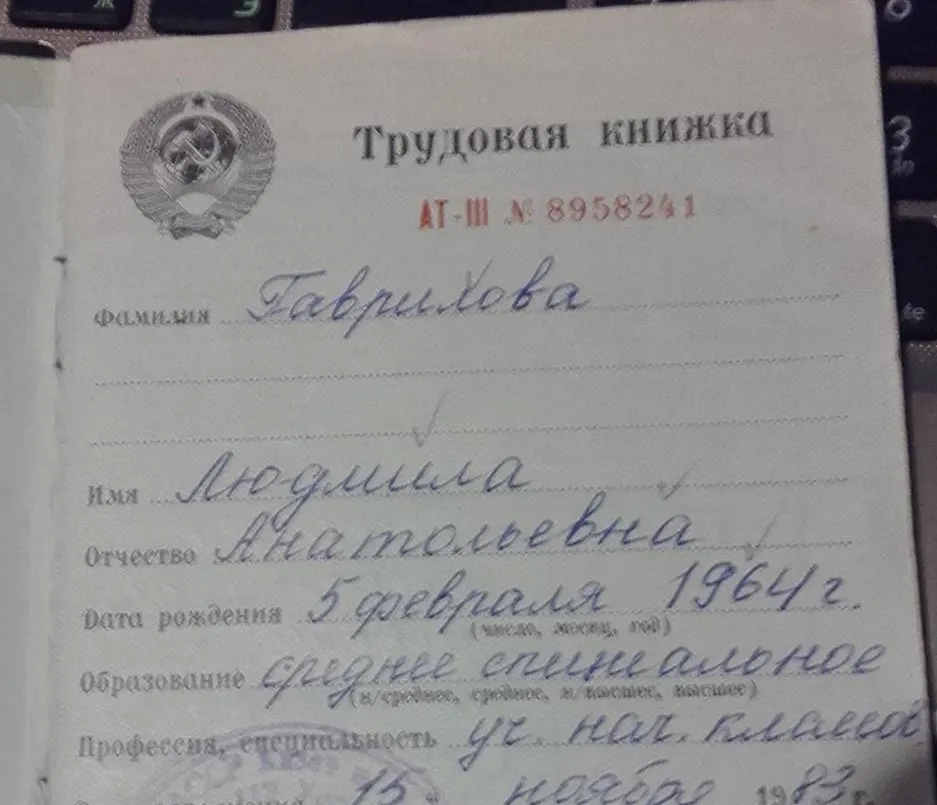 Трудовая книжка
АТ-III № 8958241
Фамилия Гаврихова
Имя Людмила
Отчество Анатольевна
Дата рождения 5 февраля 1964 г.
(число, месяц, год)
Образование среднее специальное
(н/среднее, среднее, н/высшее, высшее)
Профессия, специальность уч. нач. классов
15 ноября 1983 г.